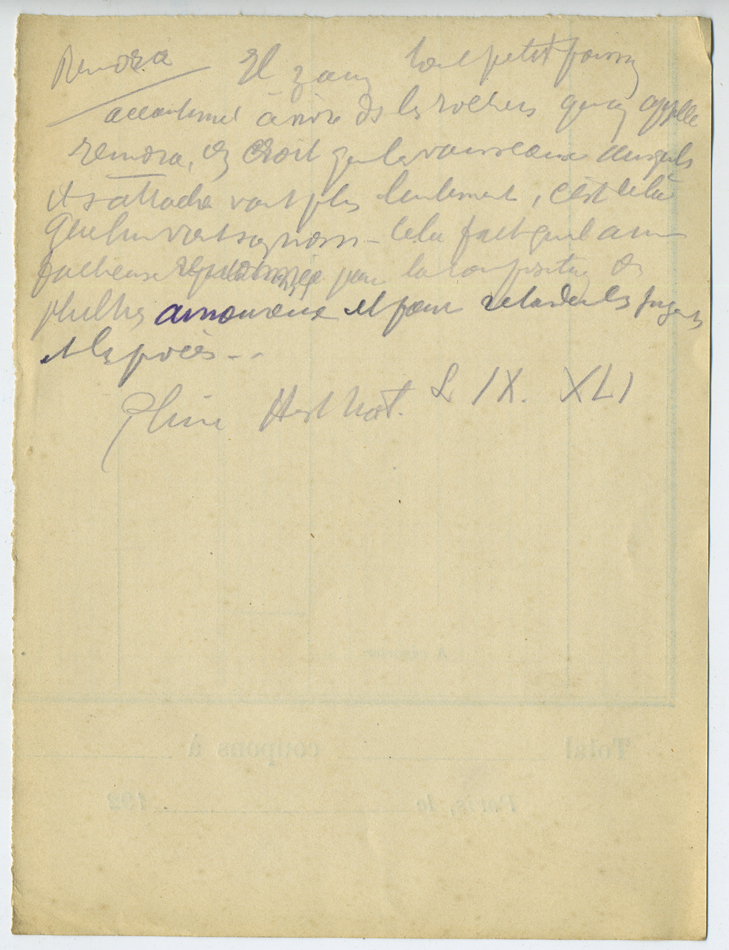 Remora Il y a un tout petit poisson
accoutumé à vivre ds les rochers qu'on appelle
remora, on croit que les vaisseaux auxquels
il s'attache vont plus lentement, c'est de là
que lui vient son nom - Cela fait qu'il a une
fâcheuse réputation pour la composition des
philtres amoureux et pour retarder les jugements
et les procès - -
Pline Hist Nat. L IX. XLI
Total coupons à
Paris, le 192